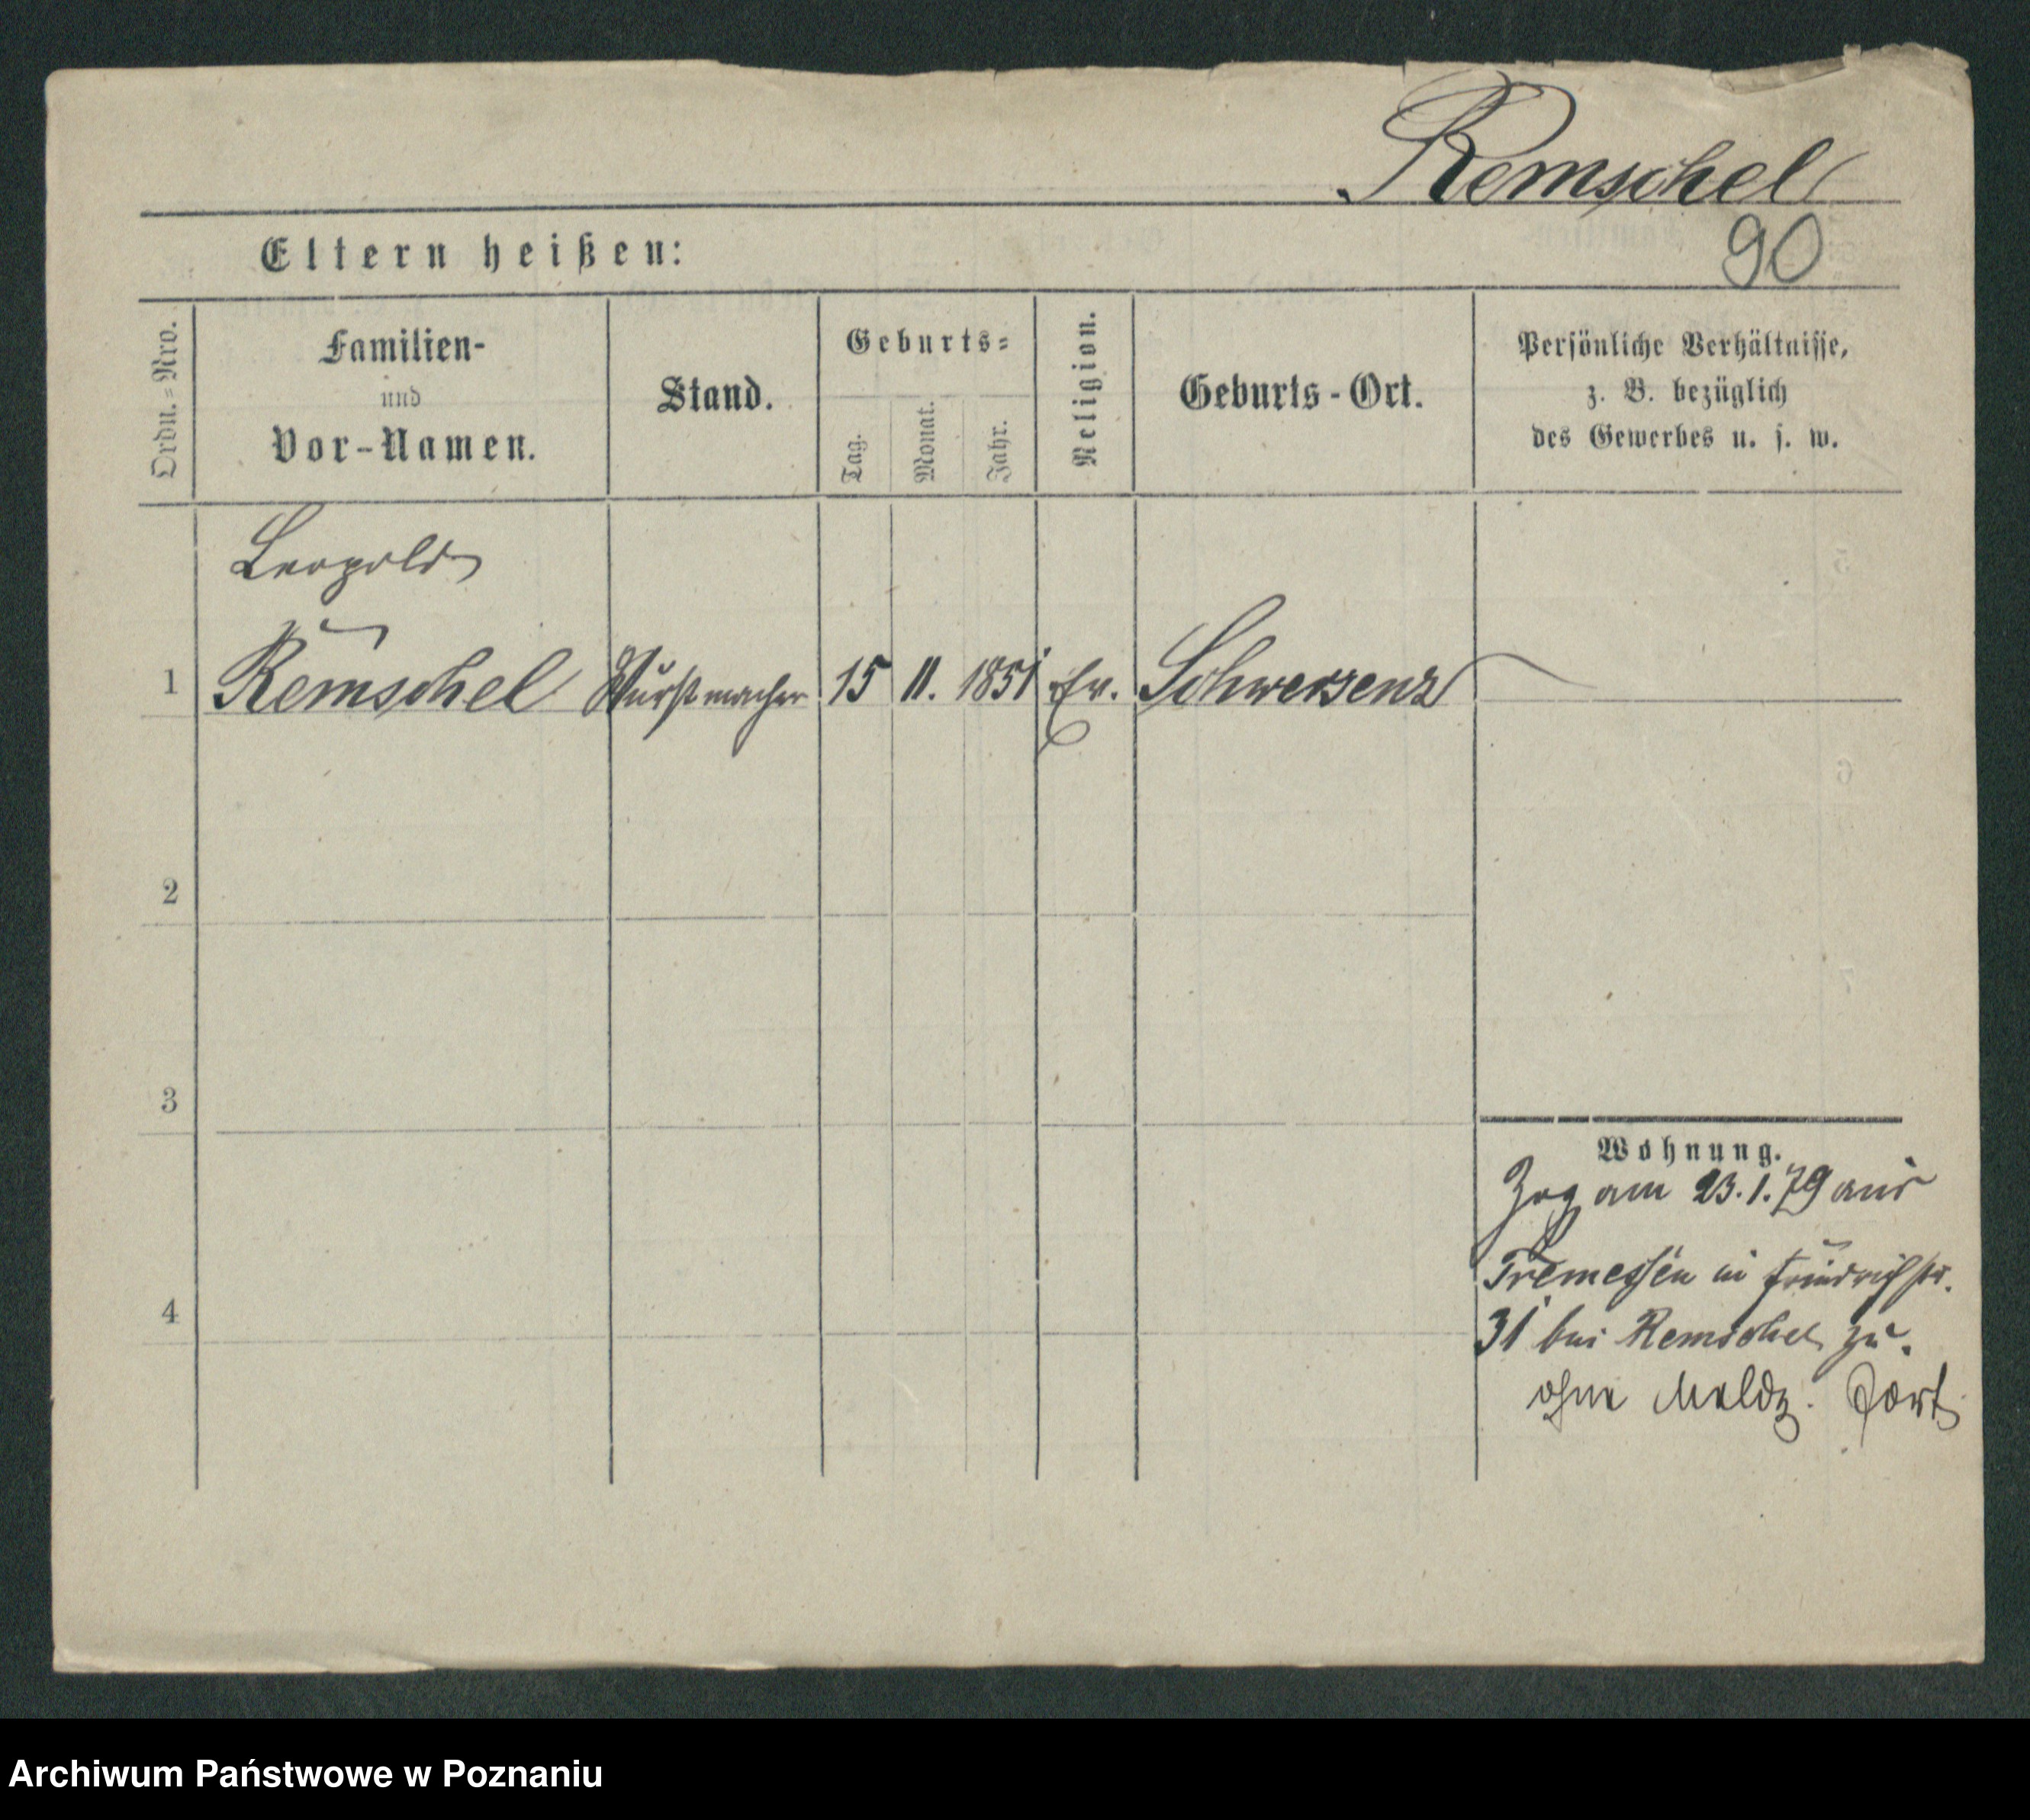 Remschel
90
Eltern heißen:
Ordn.=Nro.
Familien-
und
Vor-Namen.
Stand.
Geburts=
Tag.
Monat.
Jahr.
Religion.
Geburts-Ort.
Persönliche Verhältnisse,
z. B. bezüglich
des Gewerbes u. s. w.
Leopold
1 Remschel Wurstmacher 15 11. 1851 Ev. Schwersenz
2
3
4
Wohnung.
Zog am 23.1.79 aus
Tremessen in Friedrichstr.
31 bei Remschel zu.
ohne Meldg. fort
Archiwum Państwowe w Poznaniu